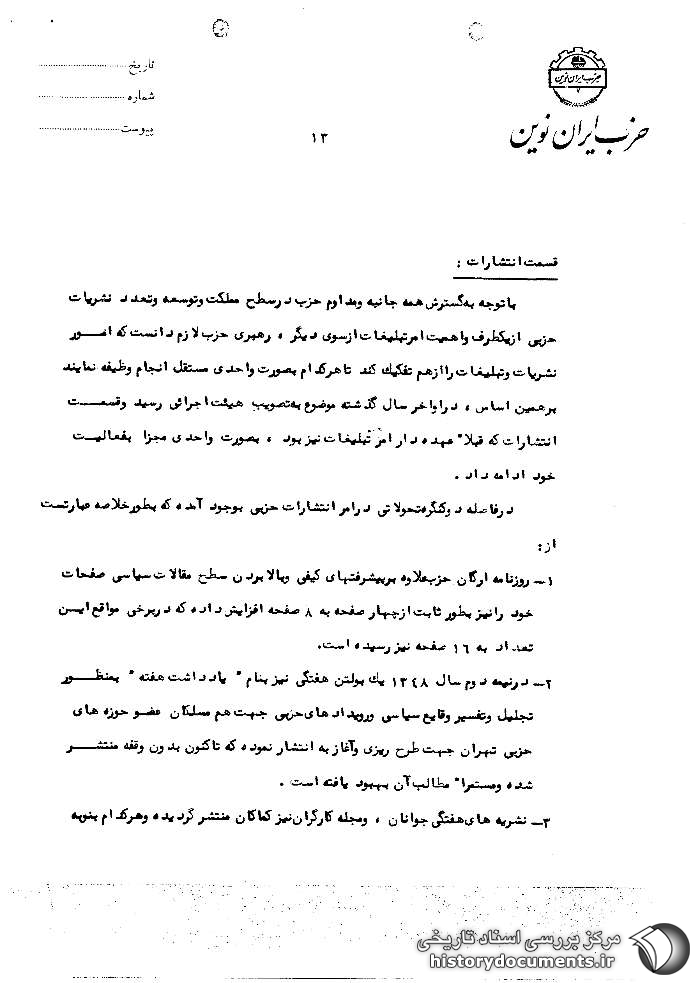 تاریخ
شماره
پیوست
حزب ایران نوین
حزب ایران نوین
۱۳
قسمت انتشارات :
با توجه به گسترش همه جانبه و مداوم حزب در سطح مملکت و توسعه و تعدد نشریات
حزبی از یکطرف و اهمیت امر تبلیغات از سوی دیگر ، رهبری حزب لازم دانست که امور
نشریات و تبلیغات را از هم تفکیک کند تا هرکدام بصورت واحدی مستقل انجام وظیفه نمایند
برهمین اساس ، در اواخر سال گذشته موضوع به تصویب هیئت اجرائی رسید و قسمت
انتشارات که قبلا" عهده دار امر تبلیغات نیز بود ، بصورت واحدی مجزا بفعالیت
خود ادامه داد .
در فاصله دو کنگره تحولاتی در امر انتشارات حزبی بوجود آمده که بطور خلاصه عبارتست
از :
۱ـ روزنامه ارگان حزب علاوه بر پیشرفتهای کیفی و بالا بردن سطح مقالات سیاسی صفحات
خود را نیز بطور ثابت از چهار صفحه به ۸ صفحه افزایش داده که در برخی مواقع این
تعداد به ۱۶ صفحه نیز رسیده است.
۲ـ در نیمه دوم سال ۱۳۴۸ یك بولتن هفتگی نیز بنام " یادداشت هفته " بمنظور
تجلیل و تفسیر وقایع سیاسی و رویدادهای حزبی جهت هم مسلکان عضو حوزه های
حزبی تهران جهت طرح ریزی و آغاز به انتشار نموده که تاکنون بدون وقفه منتشر
شده و مستمرا" مطالب آن بهبود یافته است .
۳ـ نشریه های هفتگی جوانان ، و مجله کارگران نیز کماکان منتشر گردیده و هرکدام بنوبه
مرکز بررسی اسناد تاریخی
historydocuments.ir